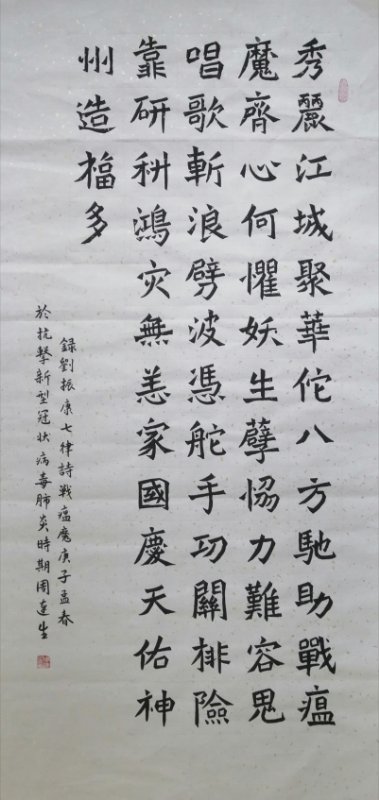 秀麗江城聚華佗八方馳助戰瘟
魔齊心何懼妖生孽恊力難容鬼
唱歌斬浪劈波憑舵手功關排險
靠研科鴻灾無恙家國慶天佑神
州造福多
録劉振康七律詩戰瘟魔庚子孟春
於抗擊新型冠狀病毒肺炎時期周連生